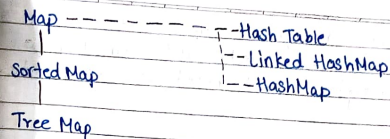 Map
Hash Table
Linked HashMap
HashMap
Sorted Map
Tree Map